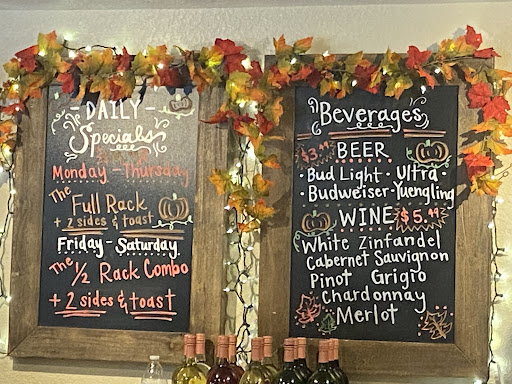 DAILY
Specials
Monday - Thursday
The Full Rack
+ 2 sides & toast
Friday - Saturday
The 1/2 Rack Combo
+ 2 sides & toast
Beverages
$3.99 BEER
• Bud Light • Ultra •
• Budweiser • Yuengling
WINE $5.99
White Zinfandel
Cabernet Sauvignon
Pinot Grigio
Chardonnay
Merlot